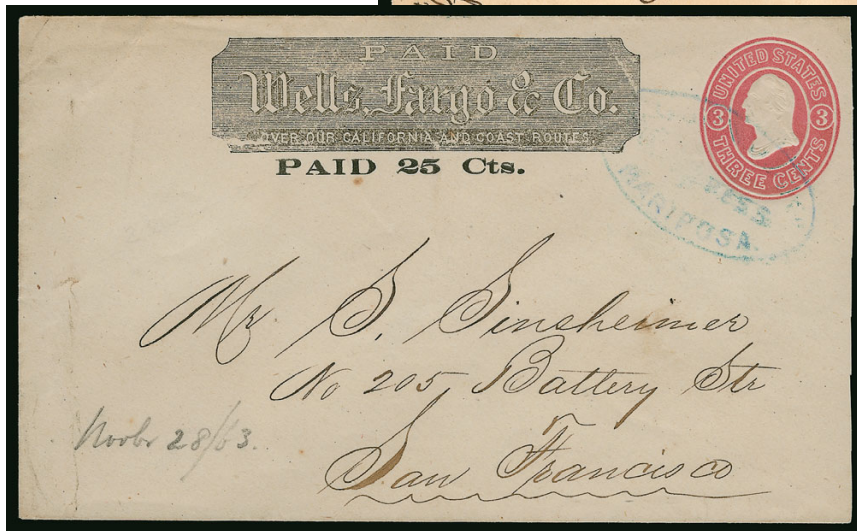 PAID
Wells, Fargo & Co.
OVER OUR CALIFORNIA AND COAST ROUTES.
PAID 25 Cts.
UNITED STATES
3 3
THREE CENTS
MARIPOSA.
Mr S. Sinsheimer
No 205 Battery Str
San Francisco
Novbr 28/63.